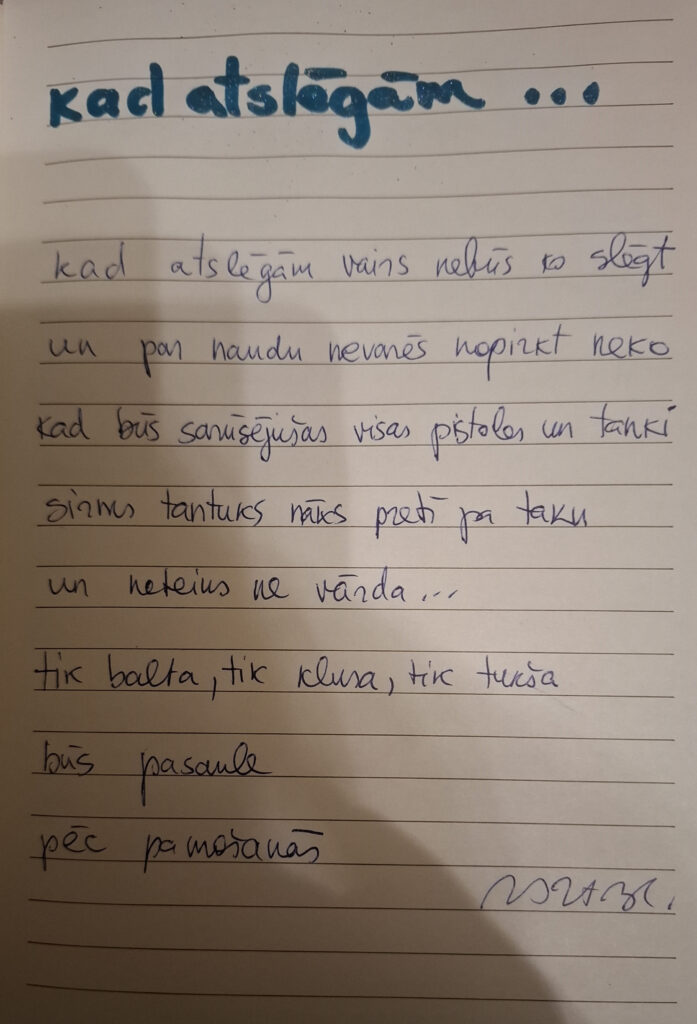 kad atslēgām ...
kad atslēgām vairs nebūs ko slēgt
un par naudu nevarēs nopirkt neko
kad būs sarūsējušas visas pistoles un tanki
sirms tantuks nāks pretī pa taku
un neteiks ne vārda...
tik balta, tik klusa, tik tukša
būs pasaule
pēc pamošanās